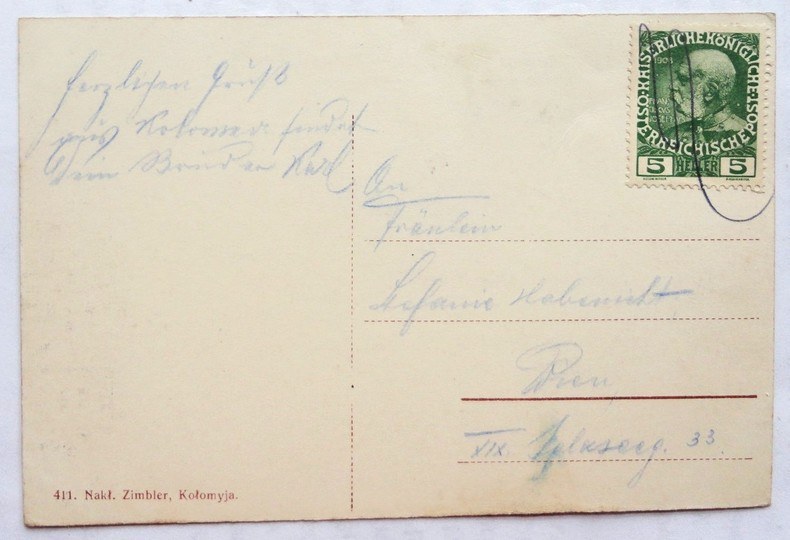 Herzlichen Gruß
aus Kolomea sendet
Dein Bruder Karl
An
Fräulein
Stefanie Habernicht
Wien
XIX. 33.
411. Nakł. Zimbler, Kołomyja.
KAISERLICHE KÖNIGLICHE ÖSTERREICHISCHE POST
5 HELLER 5